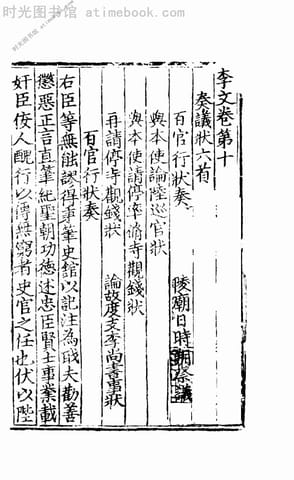 时光图书馆 atimebook.com
李文卷第十
奏議狀六首
百官行狀奏
陵廟日時朔祭議
與本使論陸巡官狀
與本使請停率脩寺觀錢狀
再請停寺觀錢狀
論故度支李尚書事狀
百官行狀奏
右臣等無能謬得秉筆史館以記注為職夫勸善
懲惡正言直筆紀聖朝功德述忠臣賢士事業載
奸臣佞人醜行以傳無窮者史官之任也伏以陛